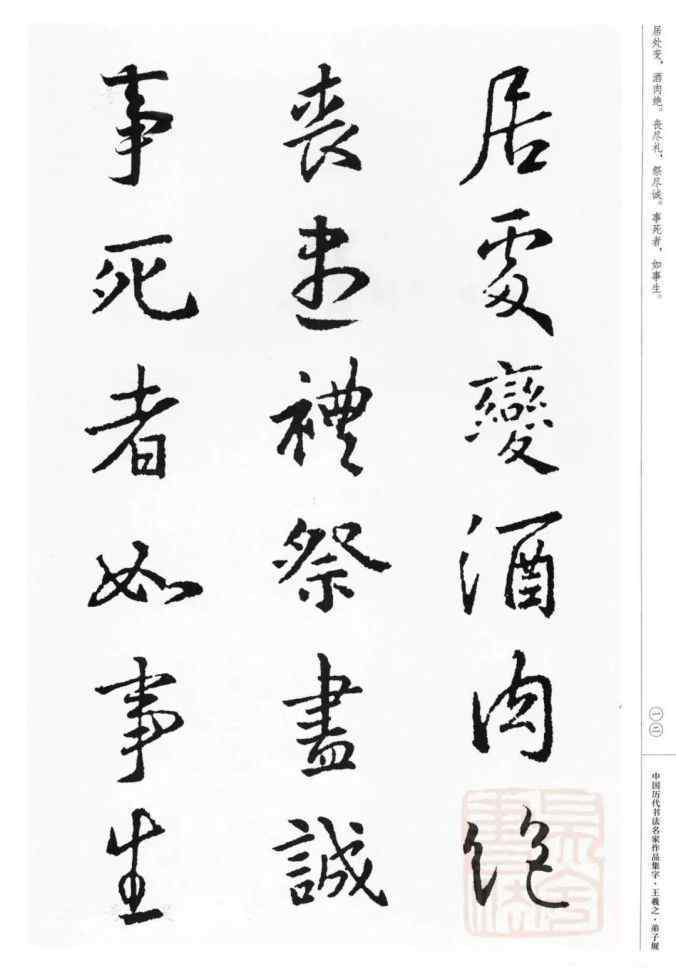 居處變酒肉絶
喪盡禮祭盡誠
事死者如事生
居处变，酒肉绝。丧尽礼，祭尽诚。事死者，如事生。
一二
中国历代书法名家作品集字·王羲之·弟子规